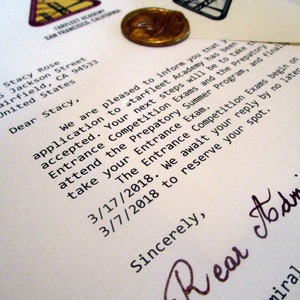 STARFLEET ACADEMY
SAN FRANCISCO, CALIFORNIA
Stacy Rose
Jackson Street
Fairfield, CA 94533
United States
Dear Stacy,
We are pleased to inform you that
application to Starfleet Academy has been
accepted. Your next steps will be to take the
Entrance Competition Exams and the Prepatory
attend the Prepatory Summer Program, and final
take your Entrance Competition Exams begin on
The Entrance
3/17/2018. We await your reply by no late
3/7/2018 to reserve your spot.
Sincerely,
Rear Admi
miral